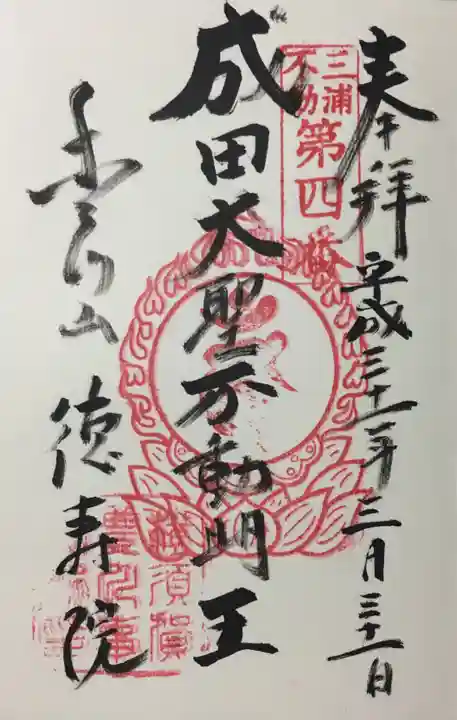 奉拝
平成三十一年三月三十一日
三浦
不動
第四
成田大聖不動明王
山
徳寿院
横須賀